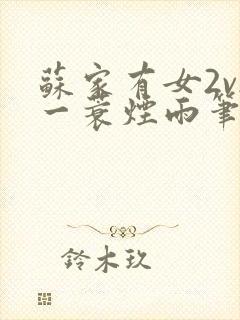 蘇家有女2v
一蓑煙雨筆
鈴木玖